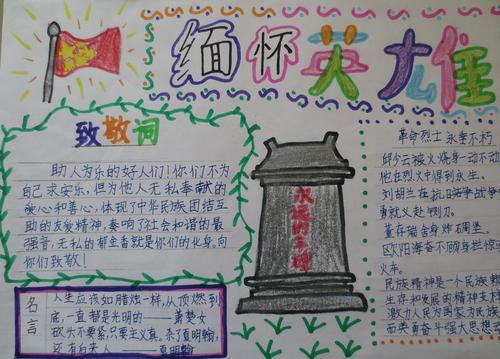 缅怀英雄
致敬词
助人为乐的好人们！你们不为
自己求安乐，但为他人无私奉献的
爱心和善心，体现了中华民族团结互
助的友爱精神，奏响了社会和谐的最
强音，无私的郁金香就是你们的化身，向
你们致敬！
永远的丰碑
名言
人生应该如腊烛一样，从顶燃到
底，一直都是光明的——萧楚女
砍头不要紧，只要主义真。杀了夏明翰，
还有后来人——夏明翰
革命烈士 永垂不朽
邱少云被火烧身一动不动
他在烈火中得到永生。
刘胡兰在抗日战争战争
勇就义赴铡刀。
董存瑞舍身炸碉堡，
欧阳海奋不顾身拦惊
火车。
民族精神是一个民族赖
生存和发展的精神支
激励人民为国家为民族
而英勇奋斗强大思想